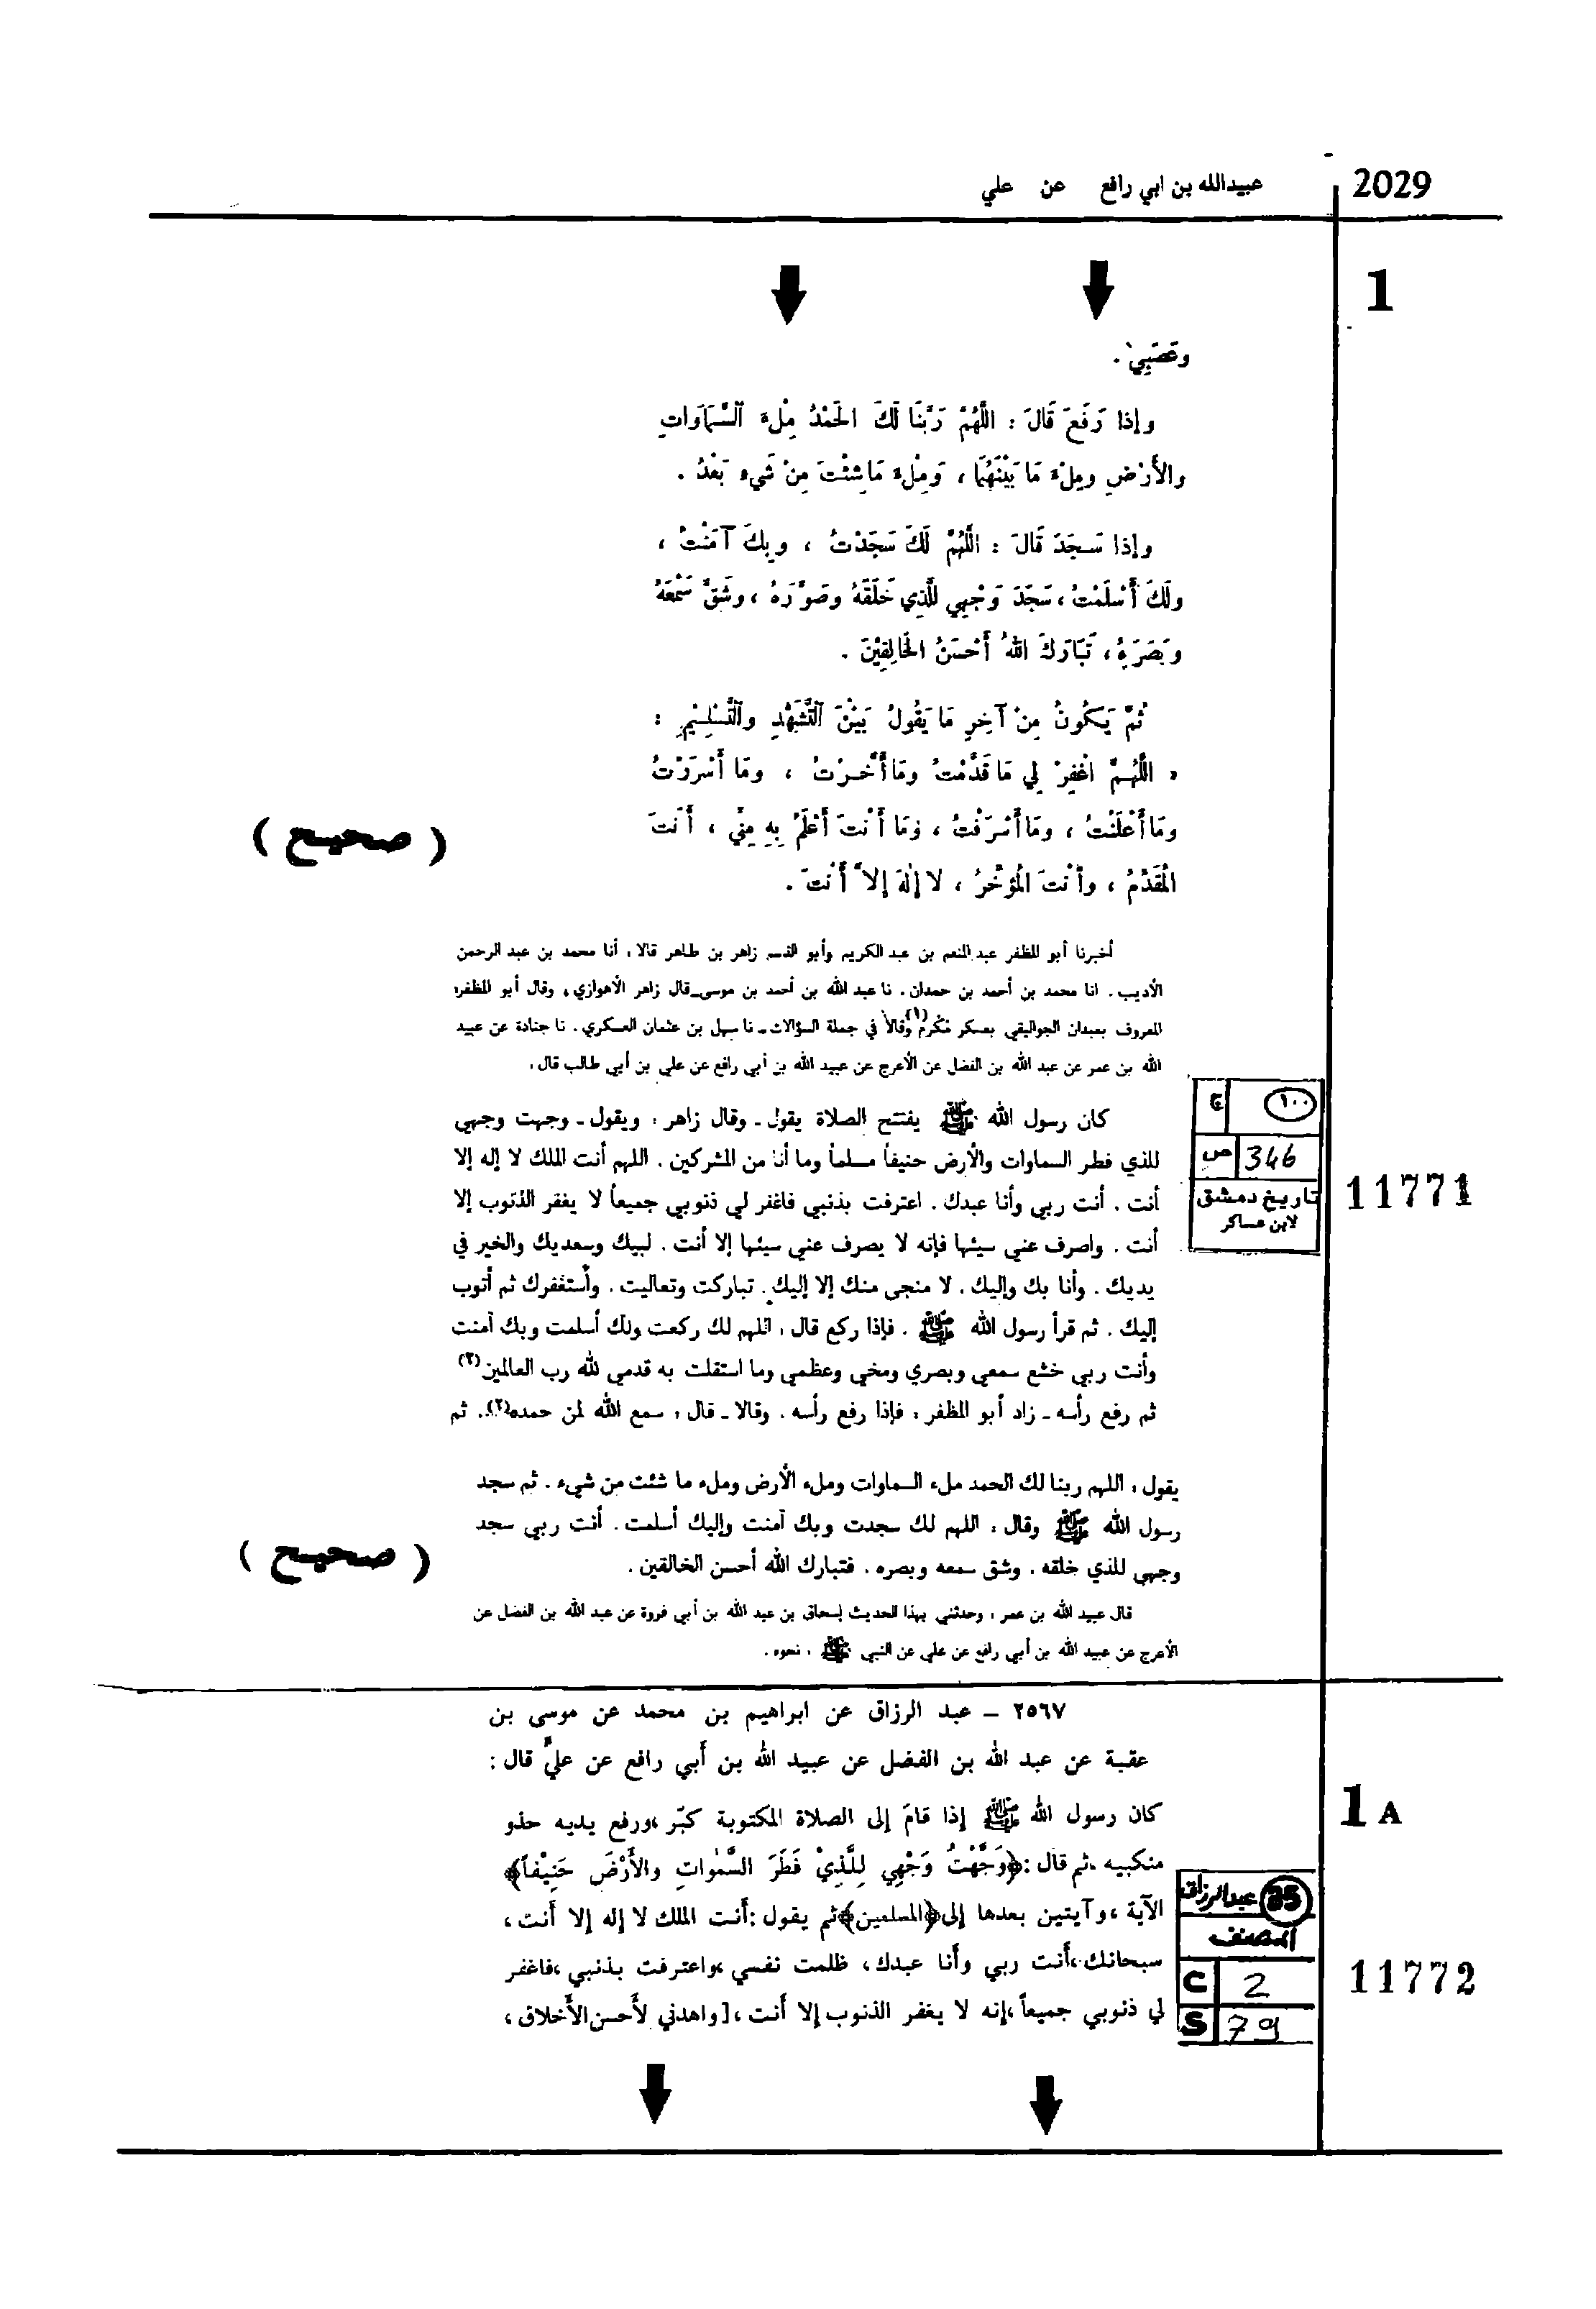 2029
عبيدالله بن ابي رافع عن علي
1
وعَصَبِي .
وإذا رَفَعَ قَالَ : اللَّهُمَّ رَبَّنَا لَكَ الحَمْدُ مِلْءَ السَّمَاوَاتِ
والأَرْضِ ومِلْءَ مَا بَيْنَهُمَا ، وَمِلْءَ مَا شِئْتَ مِنْ شَيءٍ بَعْدُ .
وإذا سَجَدَ قَالَ : اللَّهُمَّ لَكَ سَجَدْتُ ، وبِكَ آمَنْتُ ،
ولَكَ أَسْلَمْتُ ، سَجَدَ وَجْهِي لِلَّذِي خَلَقَهُ وصَوَّرَهُ ، وشَقَّ سَمْعَهُ
وبَصَرَهُ ، تَبَارَكَ اللهُ أَحْسَنُ الخَالِقِيْنَ .
ثُمَّ يَكُونُ مِنْ آخِرِ مَا يَقُولُ بَيْنَ التَّشَهُّدِ والتَّسْلِيْمِ :
« اللَّهُمَّ اغْفِرْ لِي مَا قَدَّمْتُ ومَا أَخَّرْتُ ، ومَا أَسْرَرْتُ
ومَا أَعْلَنْتُ ، ومَا أَسْرَفْتُ ، ومَا أَنْتَ أَعْلَمُ بِهِ مِنِّي ، أَنْتَ
المُقَدِّمُ ، وأَنْتَ المُؤَخِّرُ ، لا إِلٰهَ إِلاَّ أَنْتَ .
( صحيح )
أخبرنا أبو المظفر عبد المنعم بن عبد الكريم وأبو القسم زاهر بن طاهر قالا : أنا محمد بن عبد الرحمن
الأديب . انا محمد بن أحمد بن حمدان . نا عبد الله بن أحمد بن موسى ـ قال زاهر الأهوازي ، وقال أبو المظفر :
المعروف بعبدان الجواليقي بعسكر مُكْرَم (١) وقالا في جملة السؤالات ـ نا سهل بن عثمان العسكري . نا جنادة عن عبيد
الله بن عمر عن عبد الله بن الفضل عن الأعرج عن عبيد الله بن أبي رافع عن علي بن أبي طالب قال :
ج ١٠٠
ص 346
تاريخ دمشق
لابن عساكر
11771
كان رسول الله ﷺ يفتتح الصلاة يقول ـ وقال زاهر : ويقول ـ وجهت وجهي
للذي فطر السماوات والأرض حنيفاً مسلماً وما أنا من المشركين . اللهم أنت الملك لا إله إلا
أنت . أنت ربي وأنا عبدك . اعترفت بذنبي فاغفر لي ذنوبي جميعاً لا يغفر الذنوب إلا
أنت . واصرف عني سيئها فإنه لا يصرف عني سيئها إلا أنت . لبيك وسعديك والخير في
يديك . وأنا بك وإليك . لا منجى منك إلا إليك . تباركت وتعاليت . وأستغفرك ثم أتوب
إليك . ثم قرأ رسول الله ﷺ . فإذا ركع قال : اللهم لك ركعت ولك أسلمت وبك آمنت
وأنت ربي خشع سمعي وبصري ومخي وعظمي وما استقلت به قدمي لله رب العالمين (٢)
ثم رفع رأسه ـ زاد أبو المظفر : فإذا رفع رأسه . وقالا ـ قال : سمع الله لمن حمده (٢). ثم
يقول : اللهم ربنا لك الحمد ملء السماوات وملء الأرض وملء ما شئت من شيء . ثم سجد
رسول الله ﷺ وقال : اللهم لك سجدت وبك آمنت وإليك أسلمت . أنت ربي سجد
وجهي للذي خلقه . وشق سمعه وبصره . فتبارك الله أحسن الخالقين .
( صحيح )
قال عبيد الله بن عمر : وحدثني بهذا الحديث إسحاق بن عبد الله بن أبي فروة عن عبد الله بن الفضل عن
الأعرج عن عبيد الله بن أبي رافع عن علي عن النبي ﷺ ، نحوه .
٢٥٦٧ – عبد الرزاق عن ابراهيم بن محمد عن موسى بن
عقبة عن عبد الله بن الفضل عن عبيد الله بن أَبي رافع عن عليّ قال :
1 A
كان رسول الله ﷺ إذا قامَ إلى الصلاة المكتوبة كبّر ، ورفع يديه حذو
منكبيه ، ثم قال : ﴿وَجَّهْتُ وَجْهِي لِلَّذِيْ فَطَرَ السَّمٰوَاتِ والأَرْضَ حَنِيْفاً﴾
الآية ، وآيتين بعدها إلى ﴿المسلمين﴾ ثم يقول : أَنت الملك لا إله إلا أَنت ،
سبحانك ، أَنت ربي وأَنا عبدك ، ظلمت نفسي ، واعترفت بذنبي ، فاغفر
لي ذنوبي جميعاً ، إنه لا يغفر الذنوب إلا أَنت ، [واهدني لأَحسن الأَخلاق ،
35 عبدالرزاق
المصنف
C 2
S 79
11772